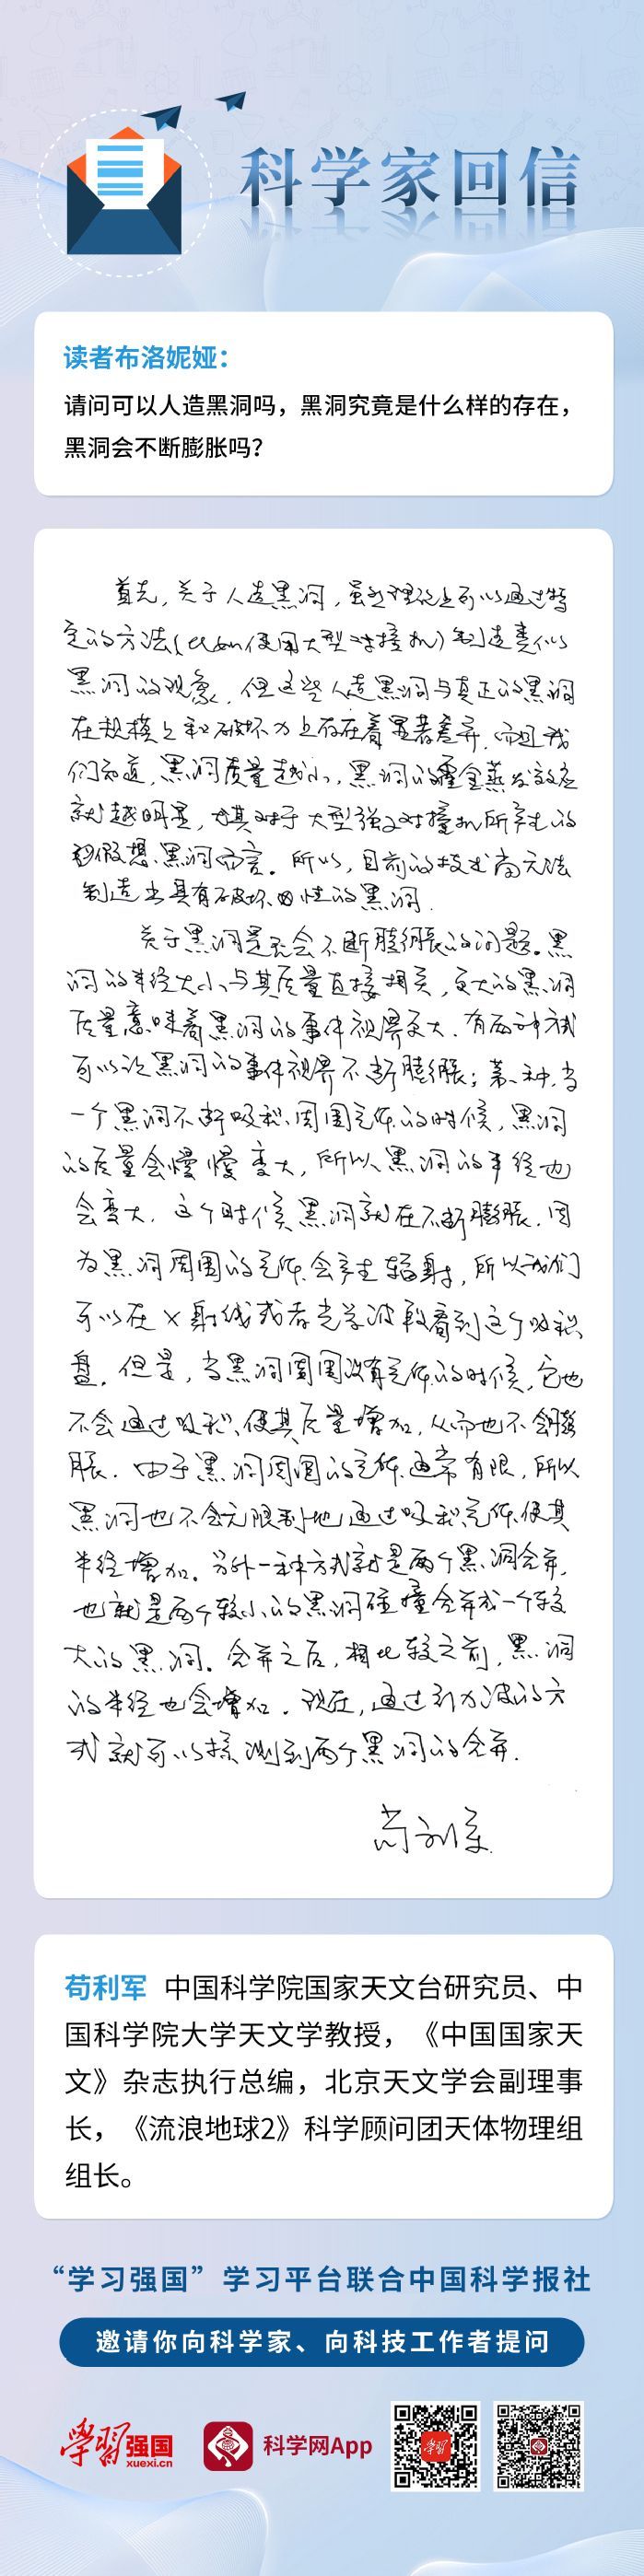 科学家回信
读者布洛妮娅：
请问可以人造黑洞吗，黑洞究竟是什么样的存在，
黑洞会不断膨胀吗？
首先，关于人造黑洞，虽然理论上可以通过特
定的方法(比如使用大型对撞机)制造类似
黑洞的现象，但这些人造黑洞与真正的黑洞
在规模上和破坏力上存在着显著差异，而且我
们知道，黑洞质量越小，黑洞的霍金蒸发效应
就越明显，尤其对于大型强子对撞机所产生的
假想黑洞而言。所以，目前的技术尚无法
制造出具有破坏性的黑洞。
关于黑洞是否会不断膨胀的问题。黑
洞的半径大小与其质量直接相关，更大的黑洞
质量意味着黑洞的事件视界更大，有两种方式
可以让黑洞的事件视界不断膨胀；第一种，当
一个黑洞不断吸积周围气体的时候，黑洞
的质量会慢慢变大，所以黑洞的半径也
会变大，这个时候黑洞就在不断膨胀，因
为黑洞周围的气体会产生辐射，所以我们
可以在X射线或者光学波段看到这个吸积
盘。但是，当黑洞周围没有气体的时候，它也
不会通过吸积使其质量增加，从而也不会膨
胀。由于黑洞周围的气体通常有限，所以
黑洞也不会无限制地通过吸积气体使其
半径增加。另外一种方式就是两个黑洞合并，
也就是两个较小的黑洞碰撞合并成一个较
大的黑洞。合并之后，相比较之前，黑洞
的半径也会增加。现在，通过引力波的方
式就可以探测到两个黑洞的合并。
苟利军
苟利军 中国科学院国家天文台研究员、中
国科学院大学天文学教授，《中国国家天
文》杂志执行总编，北京天文学会副理事
长，《流浪地球2》科学顾问团天体物理组
组长。
“学习强国”学习平台联合中国科学报社
邀请你向科学家、向科技工作者提问
学习强国 xuexi.cn 科学网App
学习